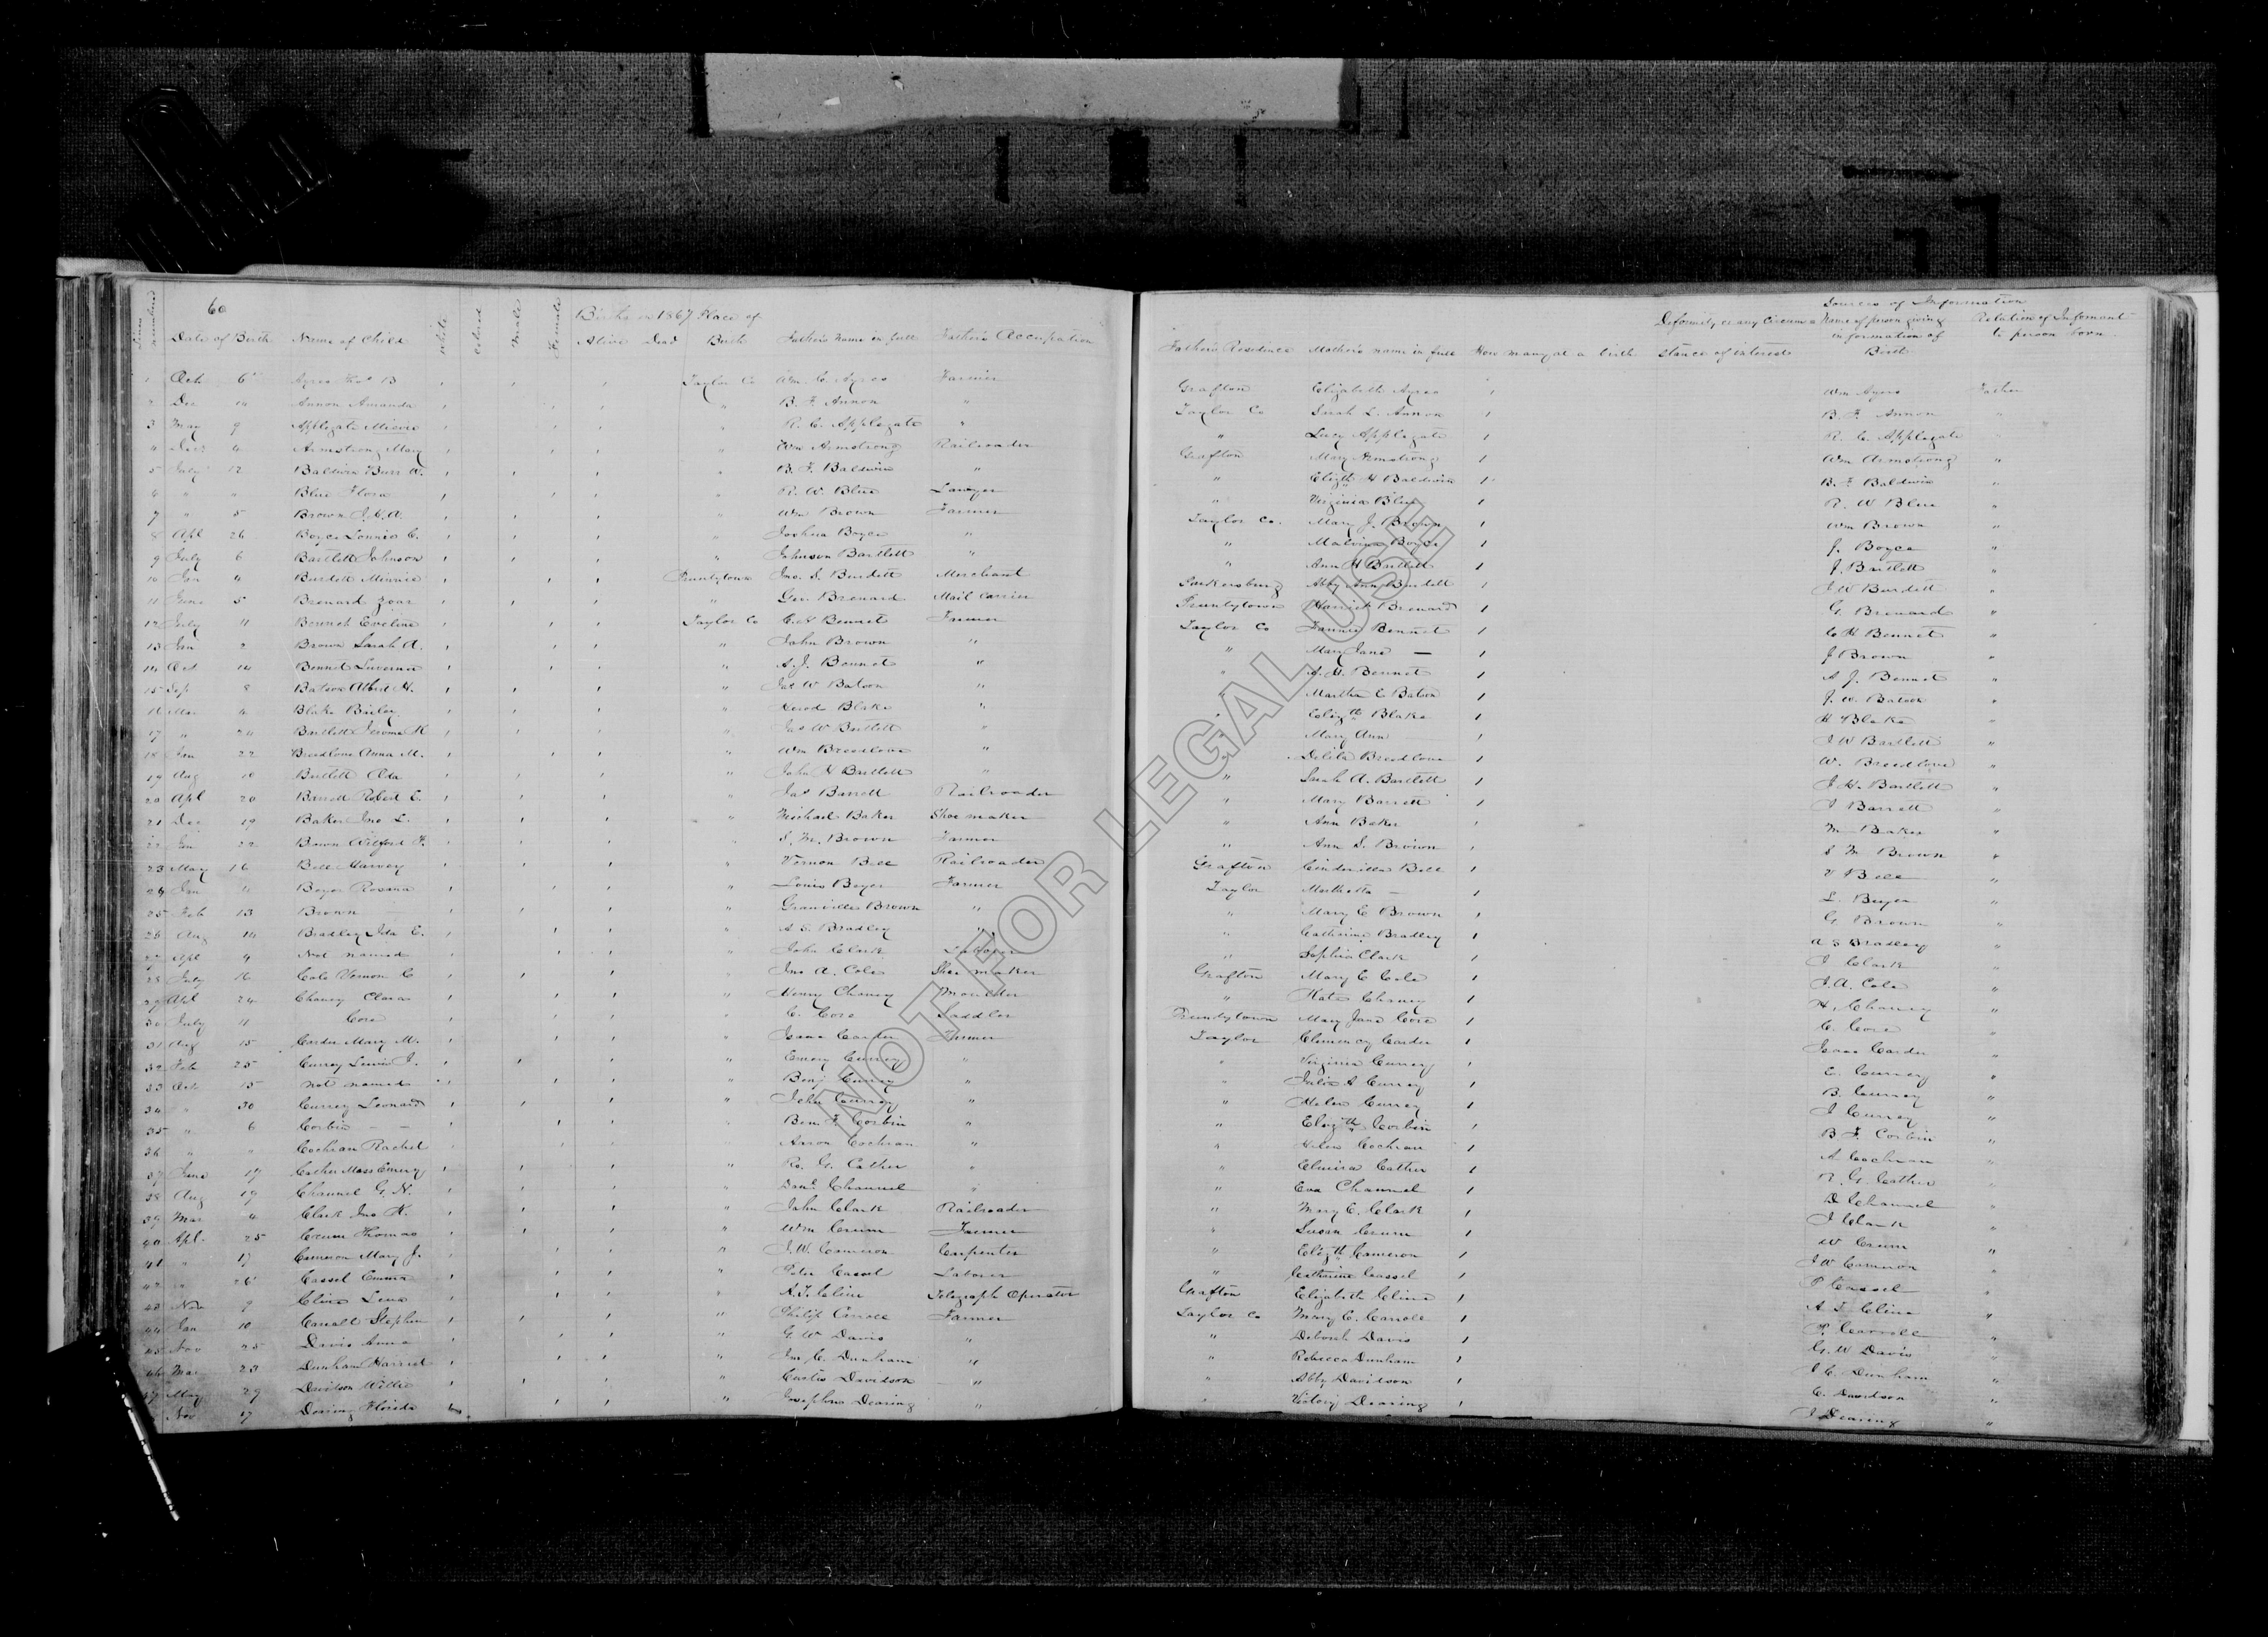 60
Births in 1867 Place of
Lines numbered Date of Birth Name of Child White Colored Male Female Alive Dead Birth Father's Name in full Father's Occupation
1 Oct 6 Ayres Thos B Taylor Co Wm. C. Ayres Farmer
2 Dec 14 Annon Amanda " B. F. Annon "
3 May 9 Applegate " R. C. Applegate "
4 Dec 4 Armstrong Mary " Wm Armstrong Railroader
5 July 12 Baldwin Burr W. " B. F. Baldwin "
6 " " Blue Flora " R. W. Blue Lawyer
7 " 5 Brown " Wm Brown Farmer
8 Apl 26 Boyce Lonnie C. " Joshua Boyce "
9 July 6 Bartlett Johnson " Johnson Bartlett "
10 Jan 4 Burdett Minnie Pruntytown Jno. S. Burdett Merchant
11 June 5 Brenard Zoar " Geo. Brenard Mail Carrier
12 July 11 Bennet Eveline Taylor Co C. H Bennet Farmer
13 Jan 2 Brown Sarah A. " John Brown "
14 Oct 14 Bennet Luverna " A. J. Bennet "
15 Sep 8 Batson Albert H. " Jas W Batson "
16 Mar 4 Blake Bailey " Herod Blake "
17 " 24 Bartlett Jerome H " Jas W Bartlett "
18 Jan 22 Breedlove Anna M. " Wm Breedlove "
19 Aug 10 Bartlett Ada " John H Bartlett "
20 Apl 20 Barrett Robert E. " Jas Barrett Railroader
21 Dec 19 Baker Jno L. " Michael Baker Shoe maker
22 Jan 22 Brown Wilford F. " S. M. Brown Farmer
23 May 16 Bell Harvey " Vernon Bell Railroader
24 Jan 11 Boyer Rosana " Louis Boyer Farmer
25 Feb 13 Brown — " Granville Brown "
26 Aug 14 Bradley Ida E. " A S. Bradley "
27 Apl 4 Not named " John Clark Laborer
28 July 16 Cole Vernon C " Jno A. Cole Shoe maker
29 Apl 24 Chaney Clara " Henry Chaney Moulder
30 July 11 Core " C. Core Saddler
31 Aug 15 Carder Mary M. " Isaac Carder Farmer
32 Feb 25 Currey Lewis J. " Emory Currey "
33 Oct 15 not named " Benj Currey "
34 " 30 Currey Leonard " John Currey "
35 " 6 Corbin — — " Ben. F. Corbin "
36 " " Cochran Rachel " Aaron Cochran "
37 June 17 Cather Moss Emery " Ro. G. Cather "
38 Aug 19 Channel G. N. " Danl Channel "
39 Mar 4 Clark Jno H. " John Clark Railroader
40 Apl. 25 Crum Thomas " Wm Crum Farmer
41 " 17 Cameron Mary J. " J. W. Cameron Carpenter
42 " 26 Cassel Emma " Peter Cassel Laborer
43 Nov 9 Cline Lena " A. T. Cline Telegraph Operator
44 Jan 10 Carroll Stephen " Philip Carroll Farmer
45 Nov 25 Davis Anna " G. W Davis "
46 Mar 23 Dunham Harriet " Jno C. Dunham "
47 May 29 Davidson Willie " Curtis Davidson "
Nov 17 Dearing Florida " Josephus Dearing "
Sources of Information
Father's Residence Mother's name in full How many at a birth Deformity or any Circumstance of interest Name of person giving information of Birth Relation of Informant to person born
Grafton Elizabeth Ayres 1 Wm Ayres Father
Taylor Co Sarah L. Annon 1 B. F. Annon "
" Lucy Applegate 1 R. C. Applegate "
Grafton Mary Armstrong 1 Wm Armstrong "
" Elizth H Baldwin 1 B. F Baldwin "
" Virginia Blue 1 R. W Blue "
Taylor Co. Mary J. Brown 1 Wm Brown "
" Malvina Boyce 1 J. Boyce "
" Ann H Bartlett 1 J. Bartlett "
Parkersburg Abby Ann Burdett 1 J W Burdett "
Pruntytown Harriet Brenard 1 G. Brenard "
Taylor Co Fannie Bennet 1 C H Bennet "
" Mary Jane — 1 J Brown "
" A. H. Bennet 1 A J. Bennet "
" Martha E Batson 1 J. W. Batson "
" Elizth Blake 1 H Blake "
" Mary Ann 1 J W Bartlett "
" Delila Breedlove 1 W. Breedlove "
" Sarah A. Bartlett 1 J. H. Bartlett "
" Mary Barrett 1 J Barrett "
" Ann Baker 1 M Baker "
" Ann S. Brown 1 S M Brown "
Grafton Cinderilla Bell 1 V Bell "
Taylor Marthetta — 1 L. Boyer "
" Mary E Brown 1 G Brown "
" Catherine Bradley 1 A S Bradley "
" Sophia Clark 1 J Clark "
Grafton Mary E Cole 1 J. A. Cole "
" Kate Chaney 1 H. Chaney "
Pruntytown Mary Jane Core 1 C. Core "
Taylor Clemency Carder 1 Isaac Carder "
" Virginia Currey 1 E. Currey "
" Julia A Currey 1 B. Currey "
" Helen Currey 1 J Currey "
" Elizth Corbin 1 B F. Corbin "
" Helen Cochran 1 A Cochran "
" Elmira Cather 1 R. G. Cather "
" Eva Channel 1 D Channel "
" Mary E. Clark 1 J Clark "
" Susan Crum 1 W Crum "
" Elizth Cameron 1 J W Cameron "
" Catharine Cassel 1 P Cassel "
Grafton Elizabeth Cline 1 A T Cline "
Taylor Co Mary C. Carroll 1 P. Carroll "
" Deborah Davis 1 G. W Davis "
" Rebecca Dunham 1 J C. Dunham "
" Abby Davidson 1 C. Davidson "
" Victory Dearing 1 J Dearing "
NOT FOR LEGAL USE